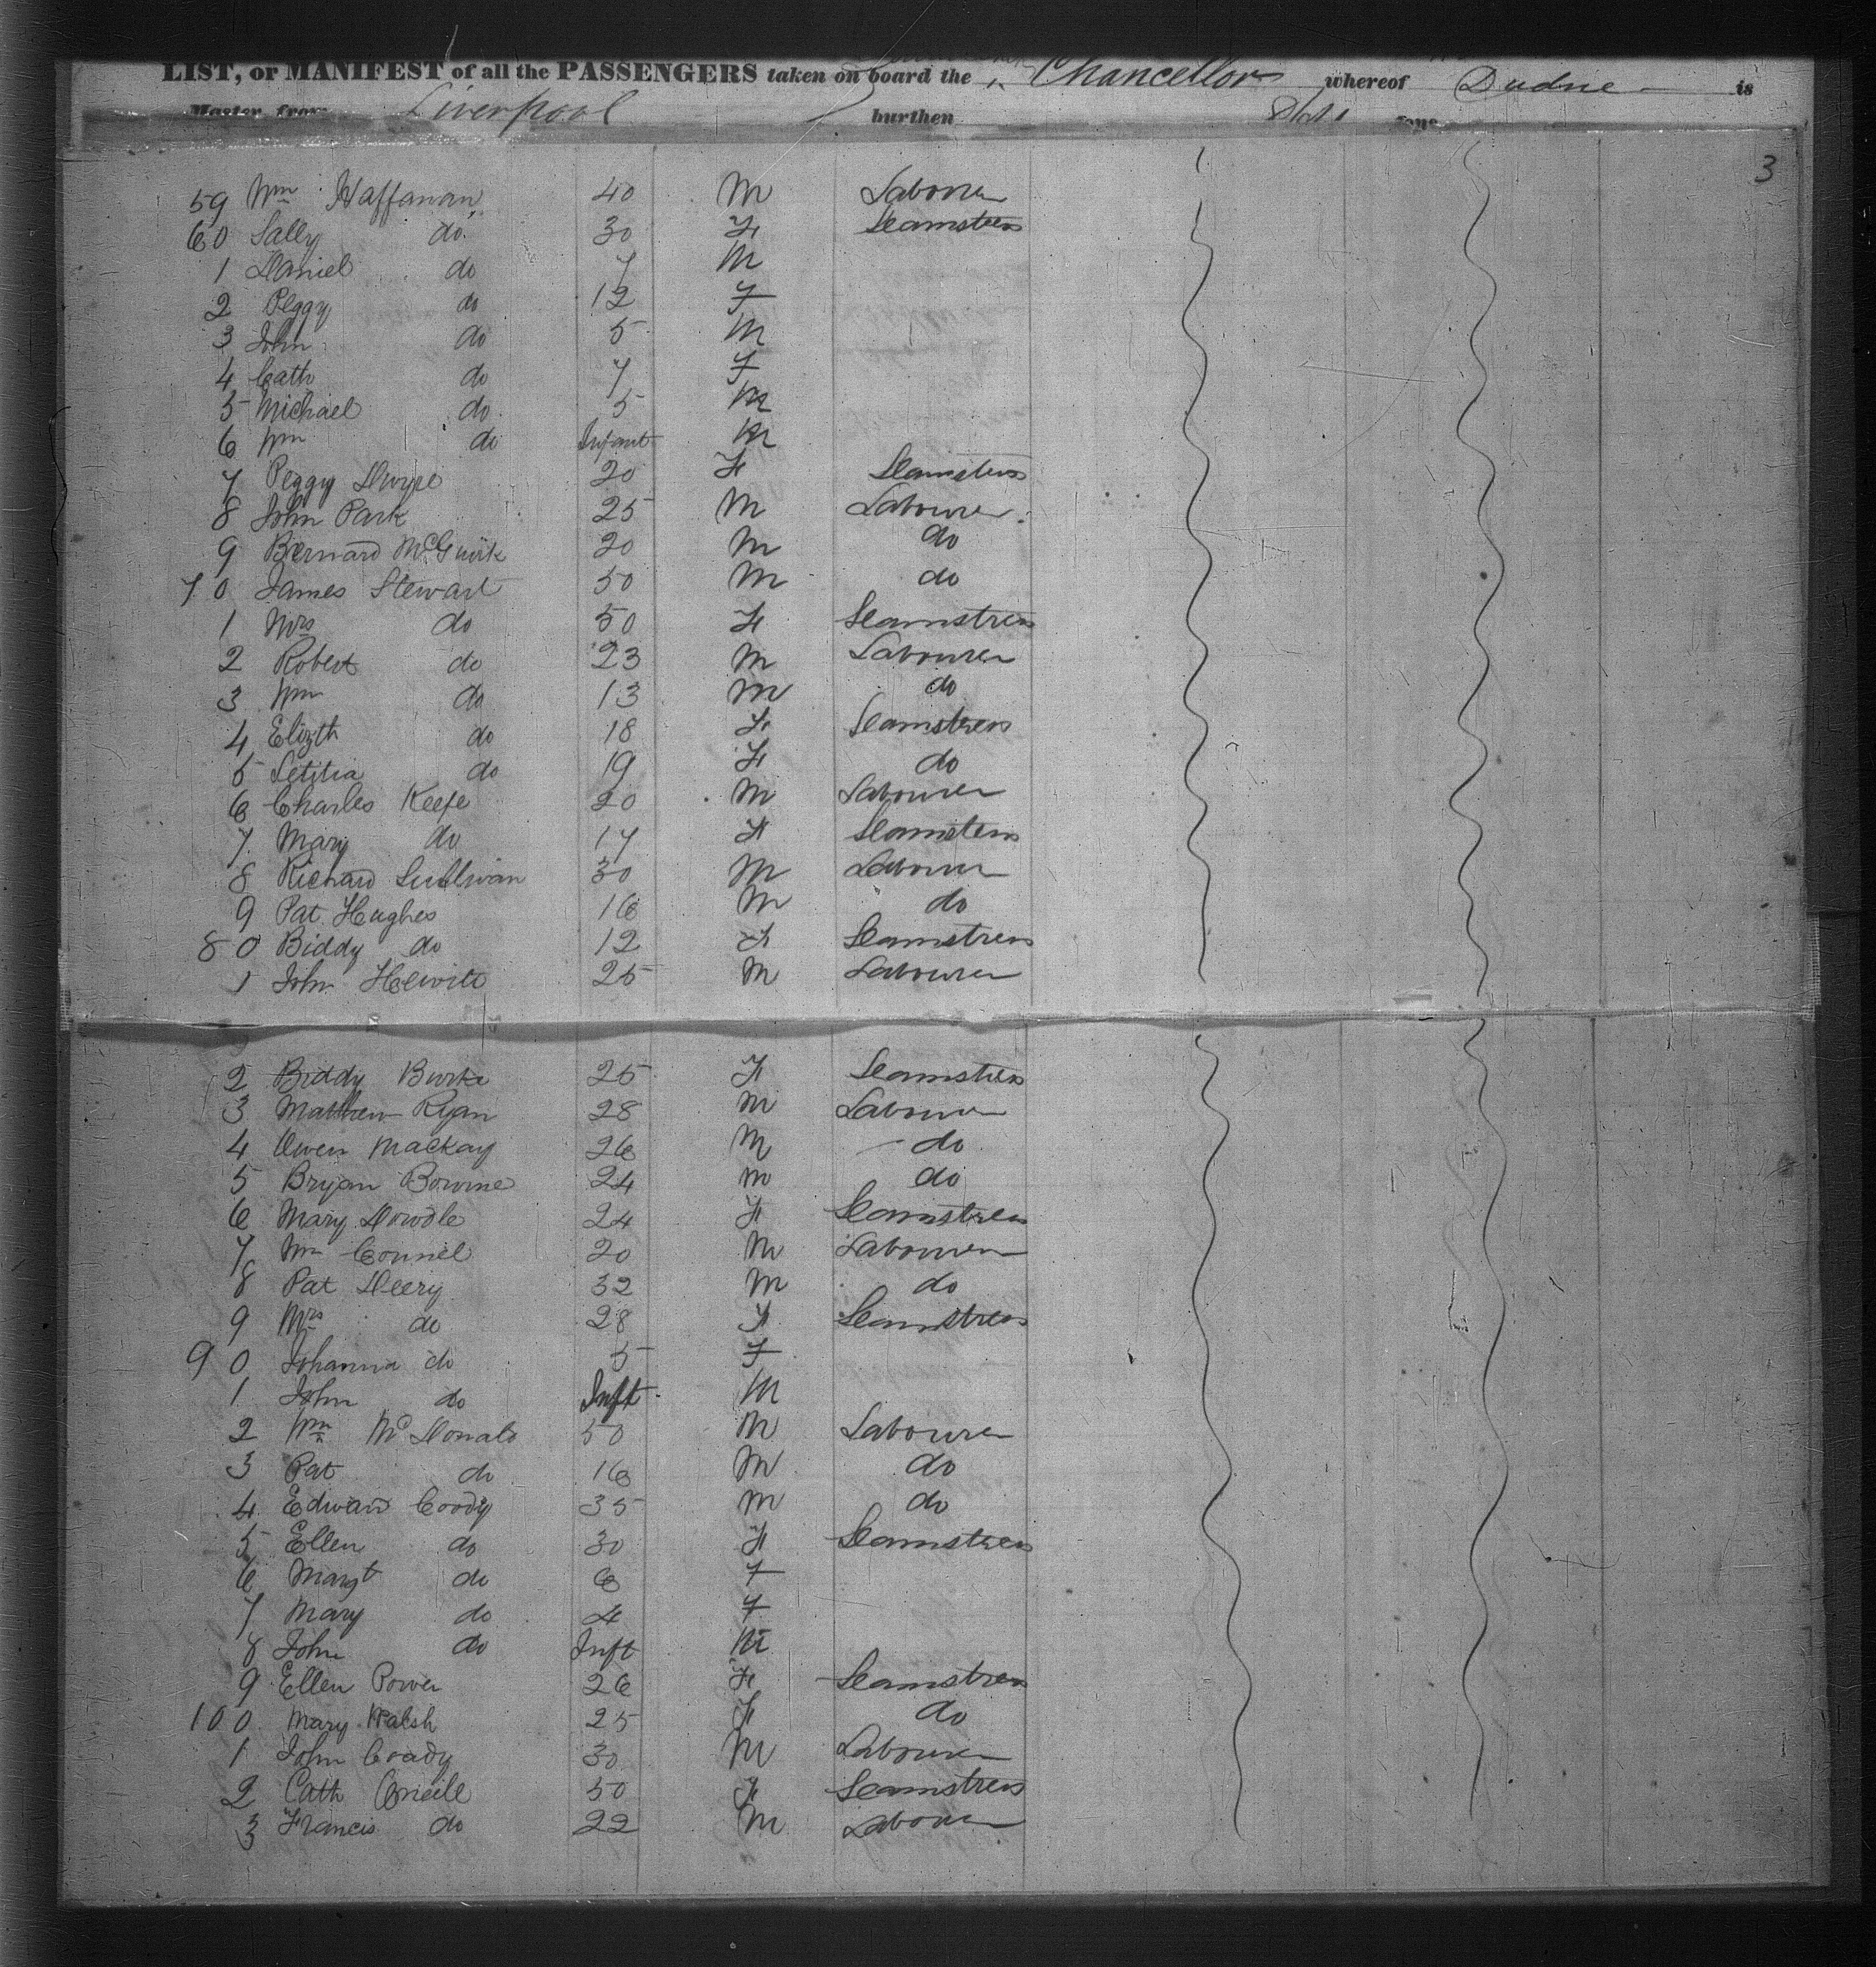 LIST, or MANIFEST of all the PASSENGERS taken on board the Chancellor whereof is
Master, from Liverpool burthen tons
3
59 Wm Haffanan 40 M Labourer
60 Sally do 30 F Seamstress
1 Daniel do 7 M
2 Peggy do 12 F
3 John do 5 M
4 Cath do 7 F
5 Michael do 5 M
6 Wm do Infant M
7 Peggy Dwyre 20 F Seamstress
8 John Park 25 M Labourer
9 Bernard McGuirk 20 M do
70 James Stewart 50 M do
1 Mrs do 50 F Seamstress
2 Robert do 23 M Labourer
3 Wm do 13 M do
4 Elizth do 18 F Seamstress
5 Letitia do 19 F do
6 Charles Keefe 20 M Labourer
7 Mary do 17 F Seamstress
8 Richard Sullivan 30 M Labourer
9 Pat Hughes 16 M do
80 Biddy do 12 F Seamstress
1 John Hewitt 25 M Labourer
2 Biddy Burke 25 F Seamstress
3 Matthew Ryan 28 M Labourer
4 Owen Mackay 26 M do
5 Bryan Bowme 24 M do
6 Mary Dowdle 24 F Seamstress
7 Wm Connel 20 M Labourer
8 Pat Deery 32 M do
9 Mrs do 28 F Seamstress
90 Johanna do 5 F
1 John do Inft M
2 Wm McDonald 50 M Labourer
3 Pat do 16 M do
4 Edward Coody 35 M do
5 Ellen do 30 F Seamstress
6 Margt do 6 F
7 Mary do 4 F
8 John do Inft M
9 Ellen Power 26 F Seamstress
100 Mary Walsh 25 F do
1 John Coady 30 M Labourer
2 Cath Oneille 50 F Seamstress
3 Francis do 22 M Labourer